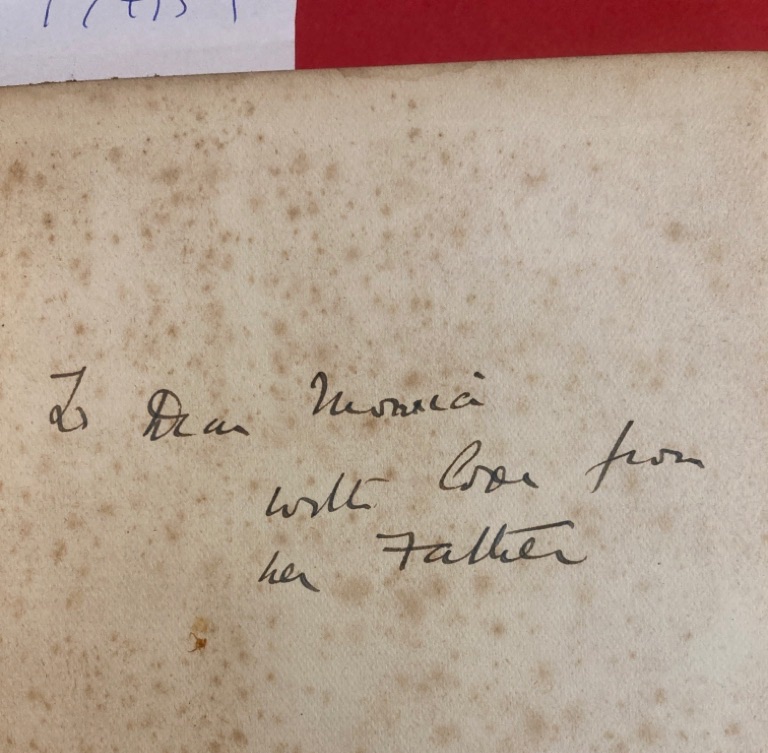 To Dear Monica
with love from
her Father